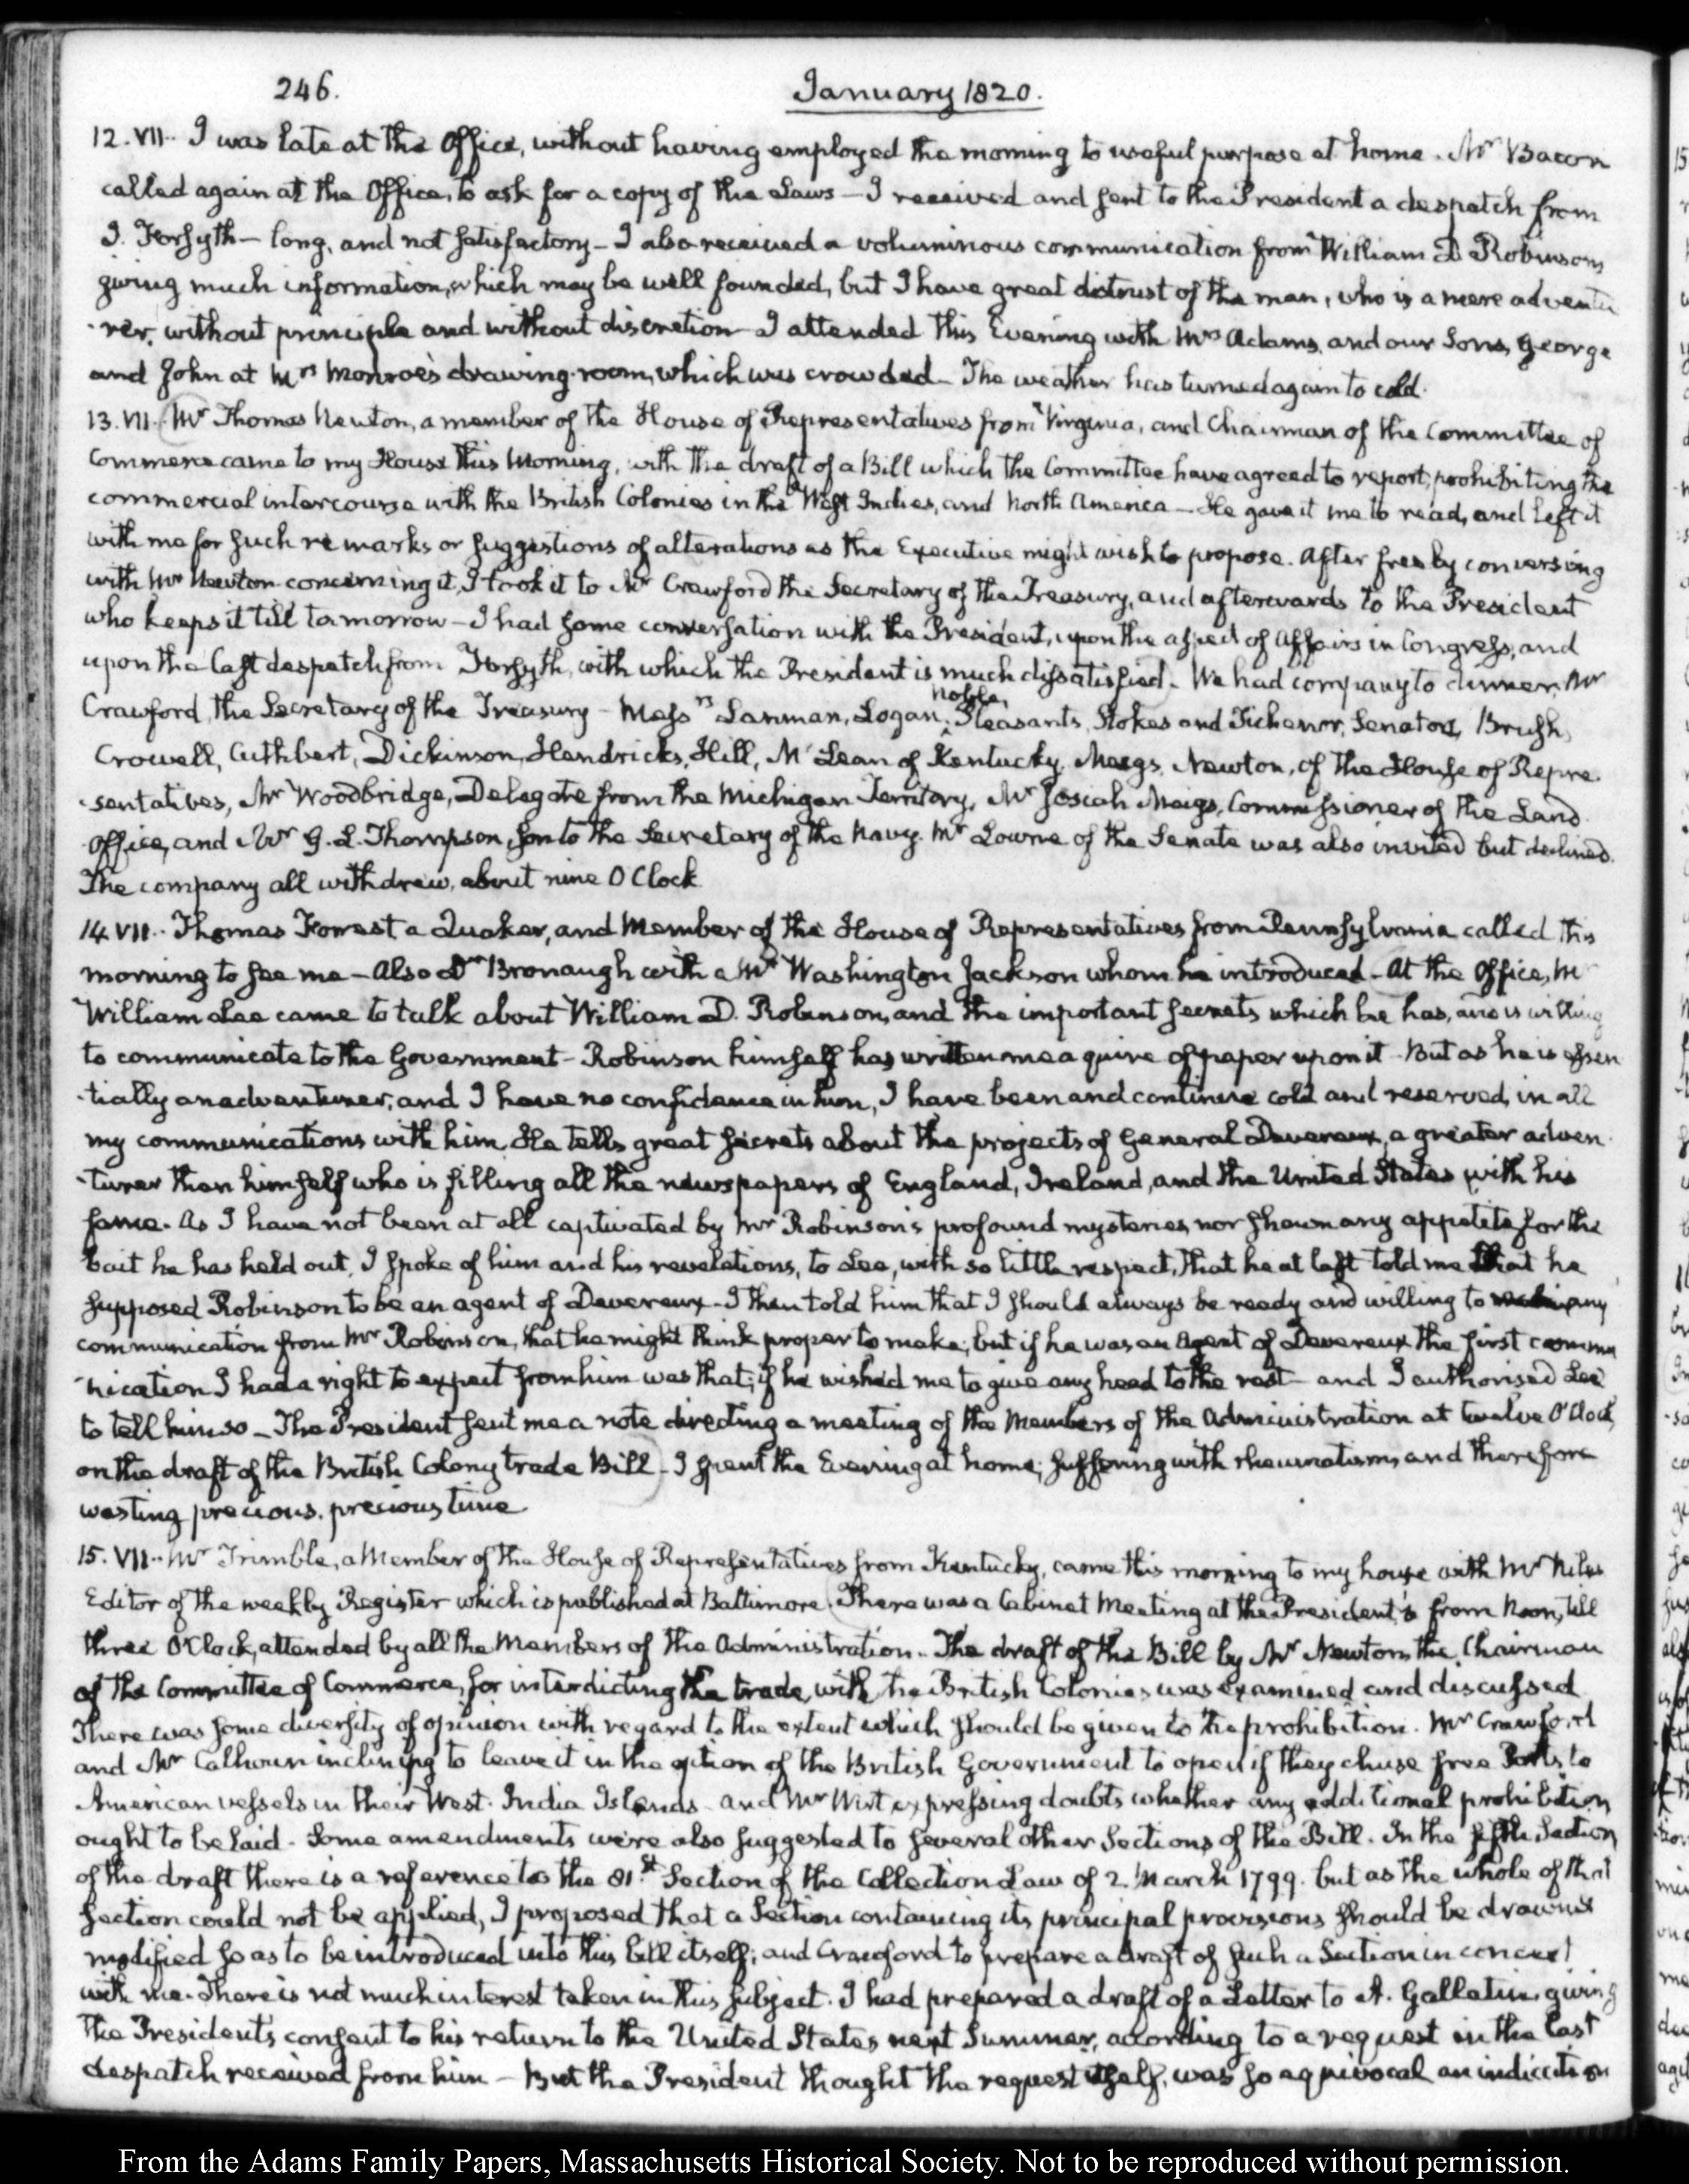 246.
January 1820.
12. VII. I was late at the Office, without having employed the morning to useful purpose at home. Mr Bacon
called again at the Office, to ask for a copy of the Laws — I received and sent to the President a despatch from
J. Forsyth — long, and not satisfactory — I also received a voluminous communication from William D Robinson,
giving much information, which may be well founded, but I have great distrust of the man, who is a mere adventu
-rer, without principle and without discretion — I attended this Evening with Mrs Adams, and our Sons, George
and John at Mrs Monroe's drawing-room, which was crowded — The weather has turned again to cold.
13. VII. Mr Thomas Newton, a member of the House of Representatives from Virginia, and Chairman of the Committee of
Commerce came to my House this Morning, with the draft of a Bill which the Committee have agreed to report, prohibiting the
commercial intercourse with the British Colonies in the West Indies, and North America — He gave it me to read, and left it
with me for such remarks or suggestions of alterations as the Executive might wish to propose. After freely conversing
with Mr Newton concerning it, I took it to Mr Crawford the Secretary of the Treasury, and afterwards to the President
who keeps it till tomorrow — I had some conversation with the President, upon the aspect of Affairs in Congress, and
upon the last despatch from Forsyth, with which the President is much dissatisfied — We had company to dinner, Mr
Crawford, the Secretary of the Treasury — Messrs Lanman, Logan, Noble, Pleasants, Stokes and Tichenor, Senators, Brush,
Crowell, Cuthbert, Dickinson, Hendricks, Hill, McLean of Kentucky, Meigs, Newton, of the House of Repre-
-sentatives, Mr Woodbridge, Delegate from the Michigan Territory, Mr Josiah Meigs, Commissioner of the Land
Office, and Mr G. L. Thompson, son to the Secretary of the Navy. Mr Lowrie of the Senate was also invited but declined.
The company all withdrew, about nine O Clock
14 VII. Thomas Forrest a Quaker, and Member of the House of Representatives from Pennsylvania called this
morning to see me — Also Dr Bronaugh with a Mr Washington Jackson whom he introduced — At the Office, Mr
William Lee came to talk about William D. Robinson, and the important secrets which he has, and is willing
to communicate to the Government — Robinson himself has written me a quire of paper upon it. But as he is essen
-tially an adventurer, and I have no confidence in him, I have been and continue cold and reserved, in all
my communications with him. He tells great secrets about the projects of General Devereux, a greater adven-
-turer than himself who is filling all the newspapers of England, Ireland, and the United States with his
fame. As I have not been at all captivated by Mr Robinson's profound mysteries nor shown any appetite for the
bait he has held out, I spoke of him and his revelations, to Lee, with so little respect, that he at last told me that he
supposed Robinson to be an agent of Devereux — I then told him that I should always be ready and willing to any
communication from Mr Robinson, that he might think proper to make; but if he was an Agent of Devereux the first commu
-nication I had a right to expect from him was that; if he wished me to give any heed to the rest — and I authorised Lee
to tell him so — The President sent me a note directing a meeting of the Members of the Administration at twelve O'Clock,
on the draft of the British Colony trade Bill — I spent the Evening at home, suffering with rheumatism, and therefore
wasting precious, precious time
15. VII. Mr Trimble, a Member of the House of Representatives from Kentucky, came this morning to my house with Mr Niles
Editor of the weekly Register which is published at Baltimore. There was a Cabinet Meeting at the President's from Noon, till
three O'Clock, attended by all the Members of the Administration. The draft of the Bill by Mr Newton, the Chairman
of the Committee of Commerce, for interdicting the trade, with the British Colonies was examined and discussed
There was some diversity of opinion with regard to the extent which should be given to the prohibition. Mr Crawford
and Mr Calhoun inclining to leave it in the option of the British Government to open if they chuse free Ports, to
American vessels in their West-India Islands — and Mr Wirt expressing doubts whether any additional prohibition
ought to be laid. Some amendments were also suggested to several other Sections of the Bill. In the fifth Section
of the draft there is a reference to the 81.st Section of the Collection Law of 2 March 1799. but as the whole of that
section could not be applied, I proposed that a Section containing its principal provisions should be drawn
modified so as to be introduced into this bill itself; and Crawford to prepare a draft of such a Section in concert
with me. There is not much interest taken in this subject. I had prepared a draft of a Letter to A. Gallatin, giving
the President's consent to his return to the United States next Summer, according to a request in the last
despatch received from him — But the President thought the request itself, was so equivocal an indication
From the Adams Family Papers, Massachusetts Historical Society. Not to be reproduced without permission.